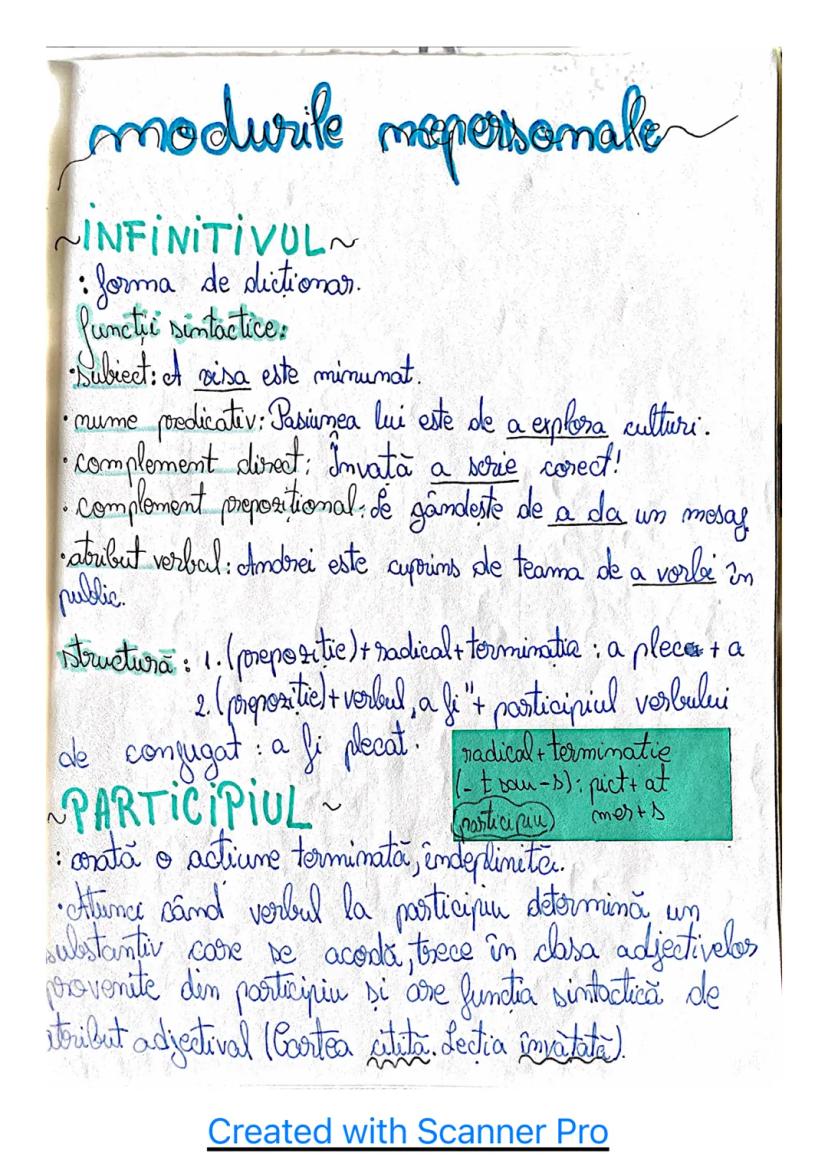 modurile nepersonale
~INFINITIVUL~
: forma de dicționar.
funcții sintactice:
·subiect: A visa este minunat.
·nume predicativ: Pasiunea lui este de a explora culturi.
·complement direct: Învață a scrie corect!
·complement prepozițional: Se gândește de a da un mesaj
·atribut verbal: Andrei este cuprins de teama de a vorbi în
public.
structură: 1. (prepoziție) + radical + terminație : a plec + a
2. (prepoziție) + verbul „a fi" + participiul verbului
de conjugat : a fi plecat.
radical + terminatie
(- t sau -s): pict + at
(participiu) mer + s
~PARTICIPIUL~
: arată o acțiune terminată, îndeplinită.
·Atunci când verbul la participiu determină un
substantiv care se acodă, trece în clasa adjectivelor
provenite din participiu și are funcția sintactică de
atribut adjectival (Cartea citită. Lecția învățată).
Created with Scanner Pro